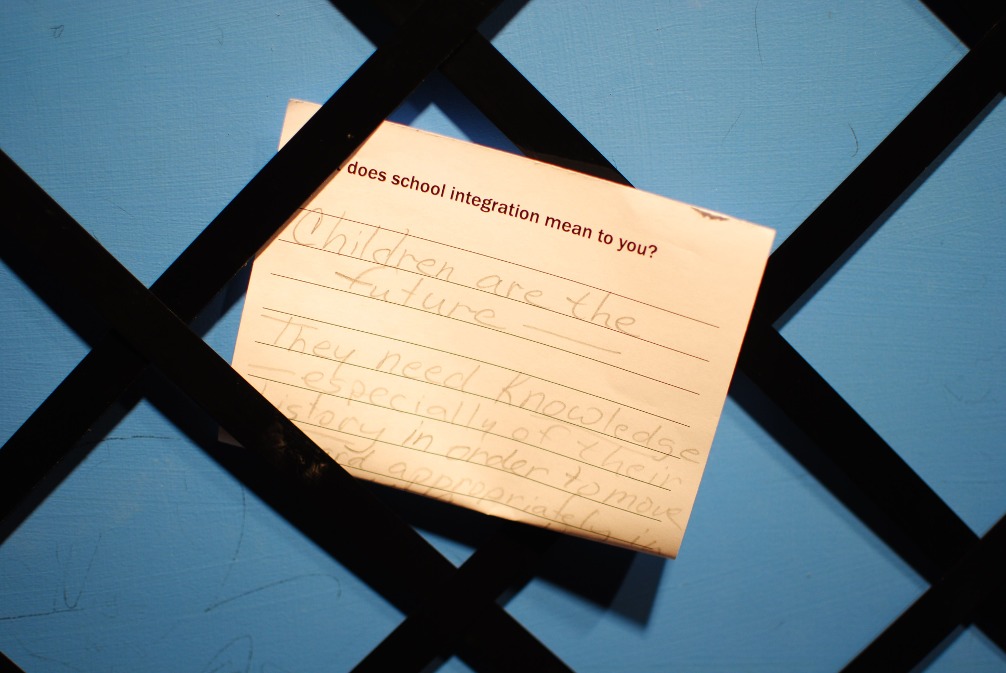 does school integration mean to you?
Children are the
future —
They need knowledge
— especially of their
history in order to move
appropriately in